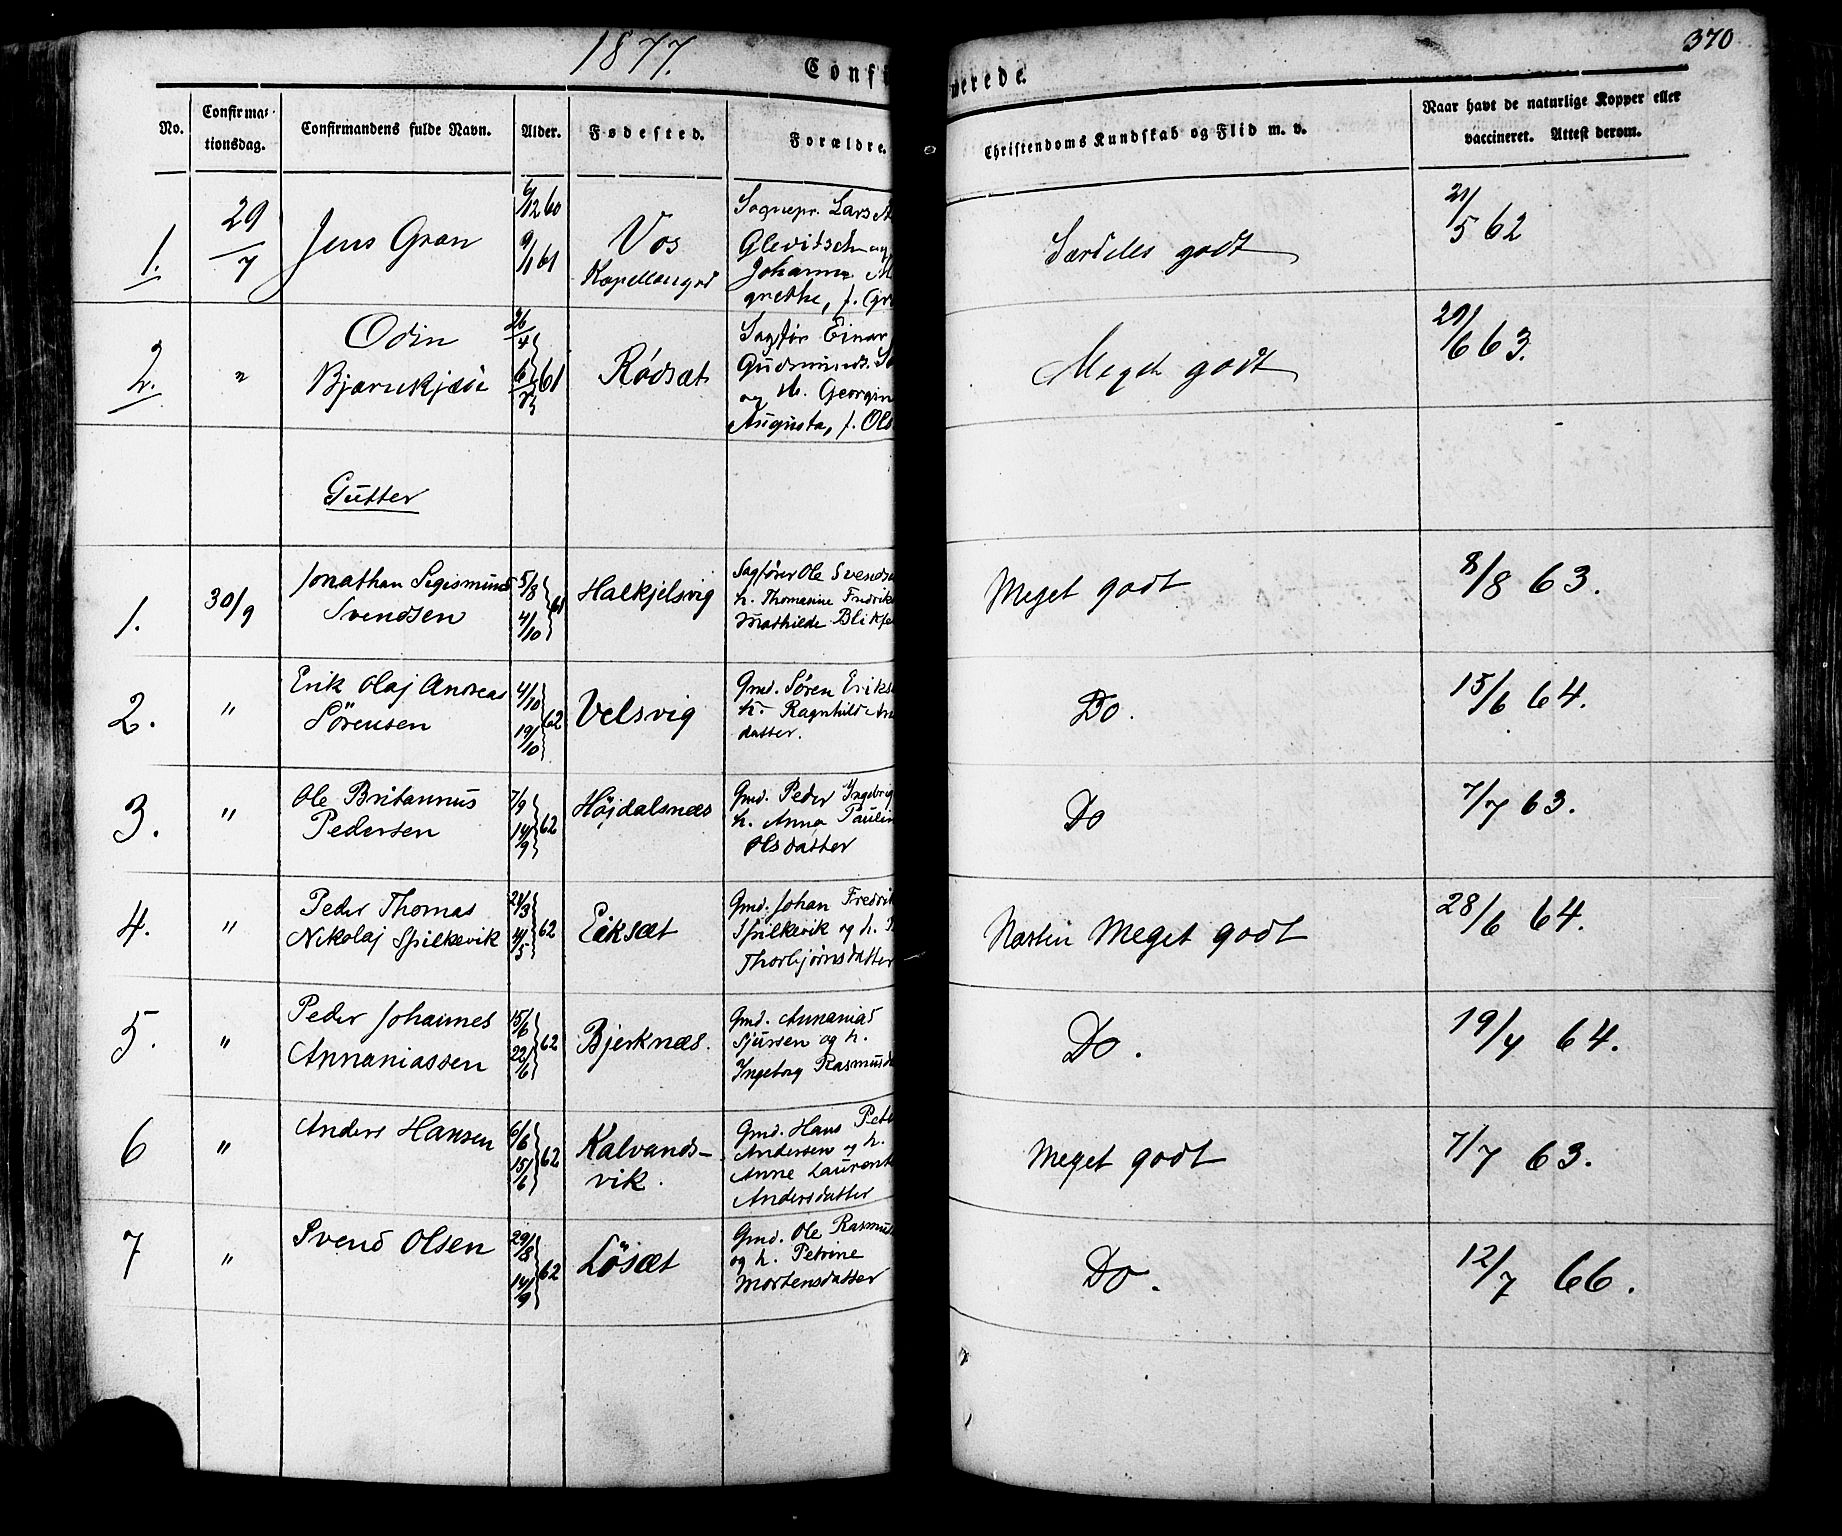 1877.
370
Confi
merede.
No.
Confirma-
tionsdag.
Confirmandens fulde Navn.
Alder.
Fødested.
Forældre.
Christendoms Kundskab og Flid m. v.
Naar havt de naturlige Kopper eller
vaccineret. Attest derom.
1.
29/7
Jens Gran
6/12 60
9/1 61
Vos
Kapellangrd
Sognepr. Lars A
Glevitsch og
Johanne M
grethe, f. Gr
Særdeles godt
21/5 62
2.
"
Odin
Bjarnekjær
26/4
61
Rødsæt
Sagfør Einar
Gudsmunds. S
og h. Georgin
Augusta, f. Ols
Meget godt
29/6 63.
Gutter
1.
30/9
Jonathan Sigismund
Svendsen
5/8
4/10 61
Halkjelsvig
Sagfører Ole Svends
h. Thomasine Fredrik
Mathilde Blikfe
Meget godt
8/8 63.
2.
"
Erik Olaj Andreas
Sörensen
4/10
19/10 62
Velsvig
Gmd. Søren Eriks
h. Ragnhild An
datter.
Do.
15/6 64.
3.
"
Ole Britannus
Pedersen
7/9
14/9 62
Højdalsnæs
Gmd. Peder Ingebrig
h. Anna Paulin
Olsdatter
Do
7/7 63.
4.
"
Peder Thomas
Nikolaj Spilkevik
24/3
4/5 62
Eiksæt
Gmd. Johan Fredrik
Spilkevik og h.
Thorbjørnsdatter
Næsten Meget godt
28/6 64.
5.
"
Peder Johannes
Annaniassen
15/6
22/6 62
Bjerknæs.
Gmd. Annanias
Sjursen og h.
Ingeborg Rasmusd
Do.
19/7 64.
6
"
Anders Hansen
6/6
15/6 62
Kalvands-
vik.
Gmd. Hans Pet
Andersen og h.
Anne Laurent
Andersdatter
Meget godt
7/7 63.
7
"
Svend Olsen
29/8
14/9 62
Lösæt
Gmd. Ole Rasmus
og h. Petrine
Mortensdatter
Do.
12/7 66.